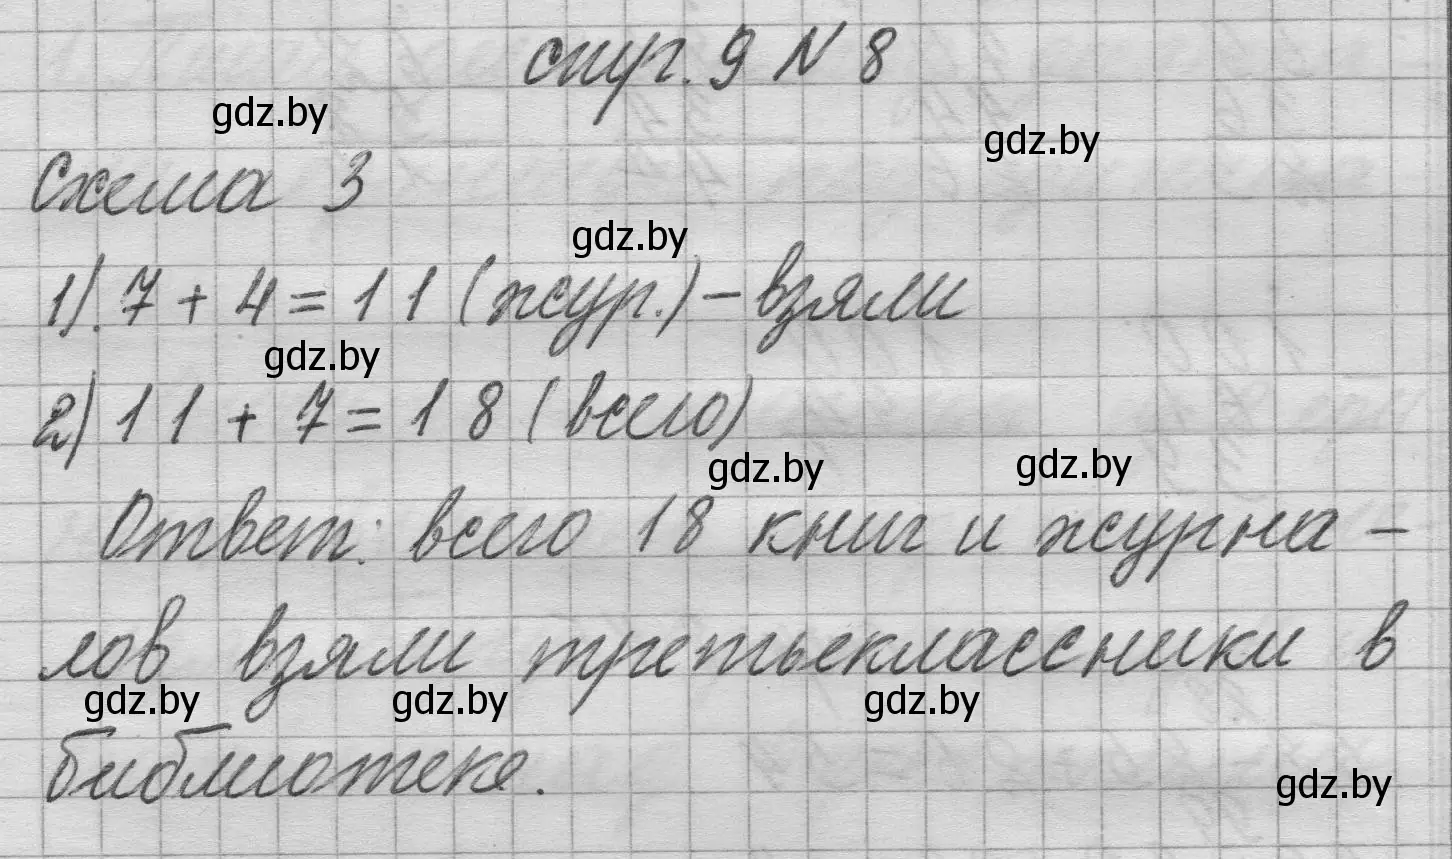 стр. 9 N 8
gdz.by
gdz.by
Схема 3
gdz.by
1). 7 + 4 = 11 (жур.) - взяли
gdz.by
2) 11 + 7 = 18 (всего)
gdz.by gdz.by
Ответ: всего 18 книг и журна -
лов взяли третьеклассники в
gdz.by gdz.by gdz.by
библиотеке.
gdz.by